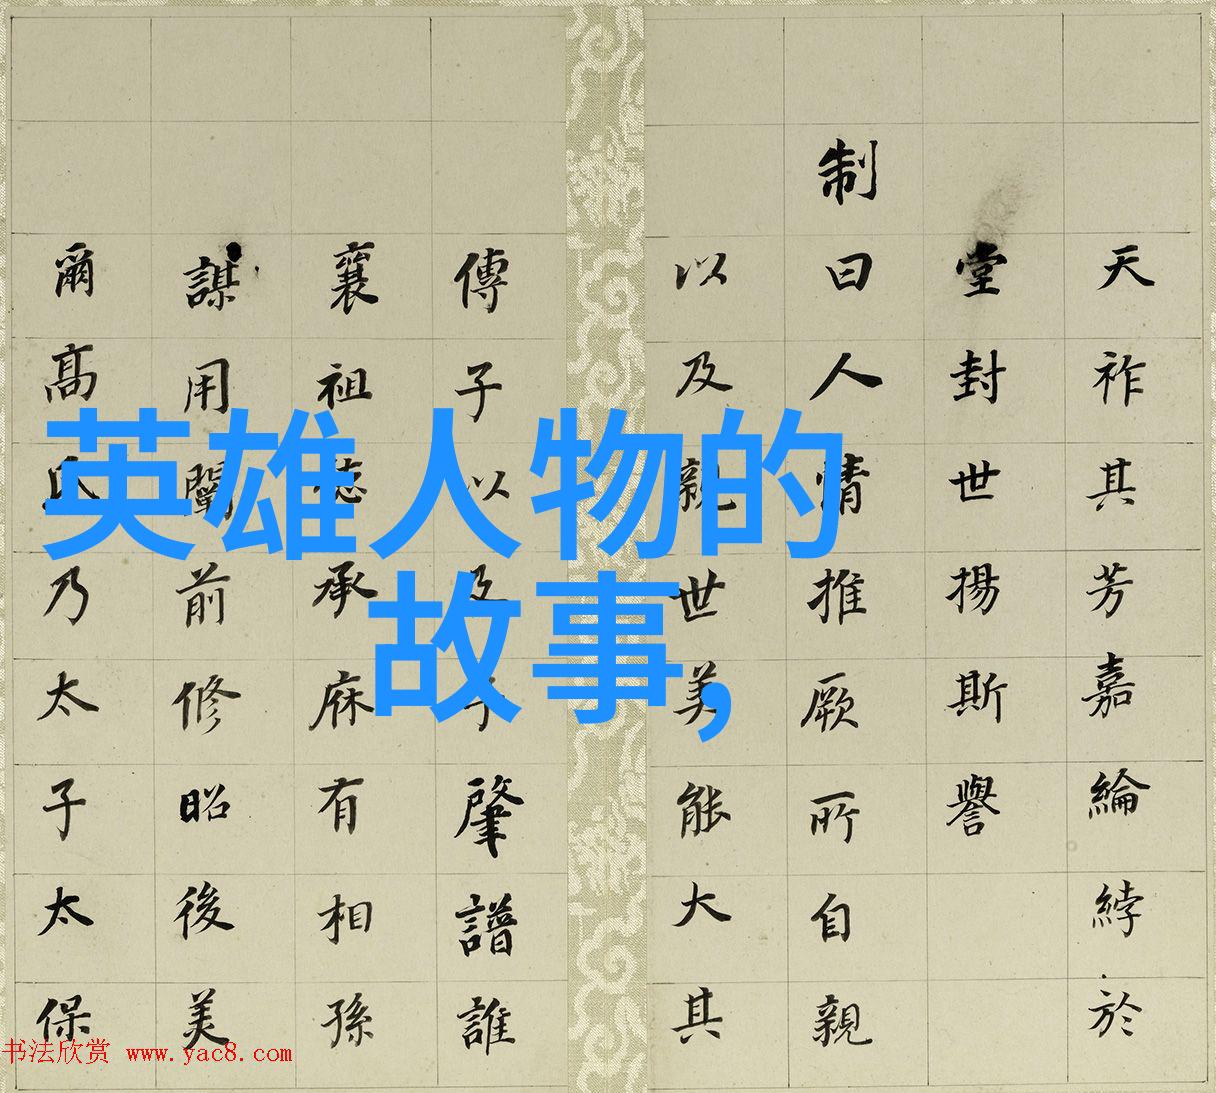 天祚其芳嘉綸綍於
堂封世揚斯譽
制曰人情推厥所自親
以及親世美能大其
傳子以及子肇譜誰
襄祖德承庥有相孫
謀用闡前修昭後美
爾高氏乃太子太保
英雄人物的
故事,
书法欣赏 www.yac8.com